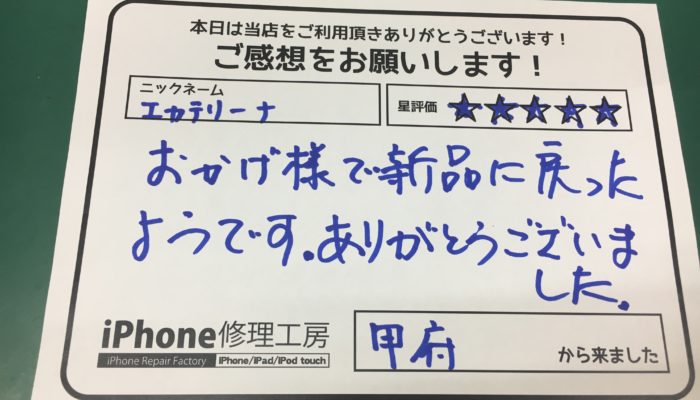 本日は当店をご利用頂きありがとうございます！
ご感想をお願いします！
ニックネーム
エカテリーナ
星評価 ★★★★★
おかげ様で新品に戻った
ようです。ありがとうございま
した。
iPhone修理工房
iPhone Repair Factory iPhone/iPad/iPod touch
甲府 から来ました